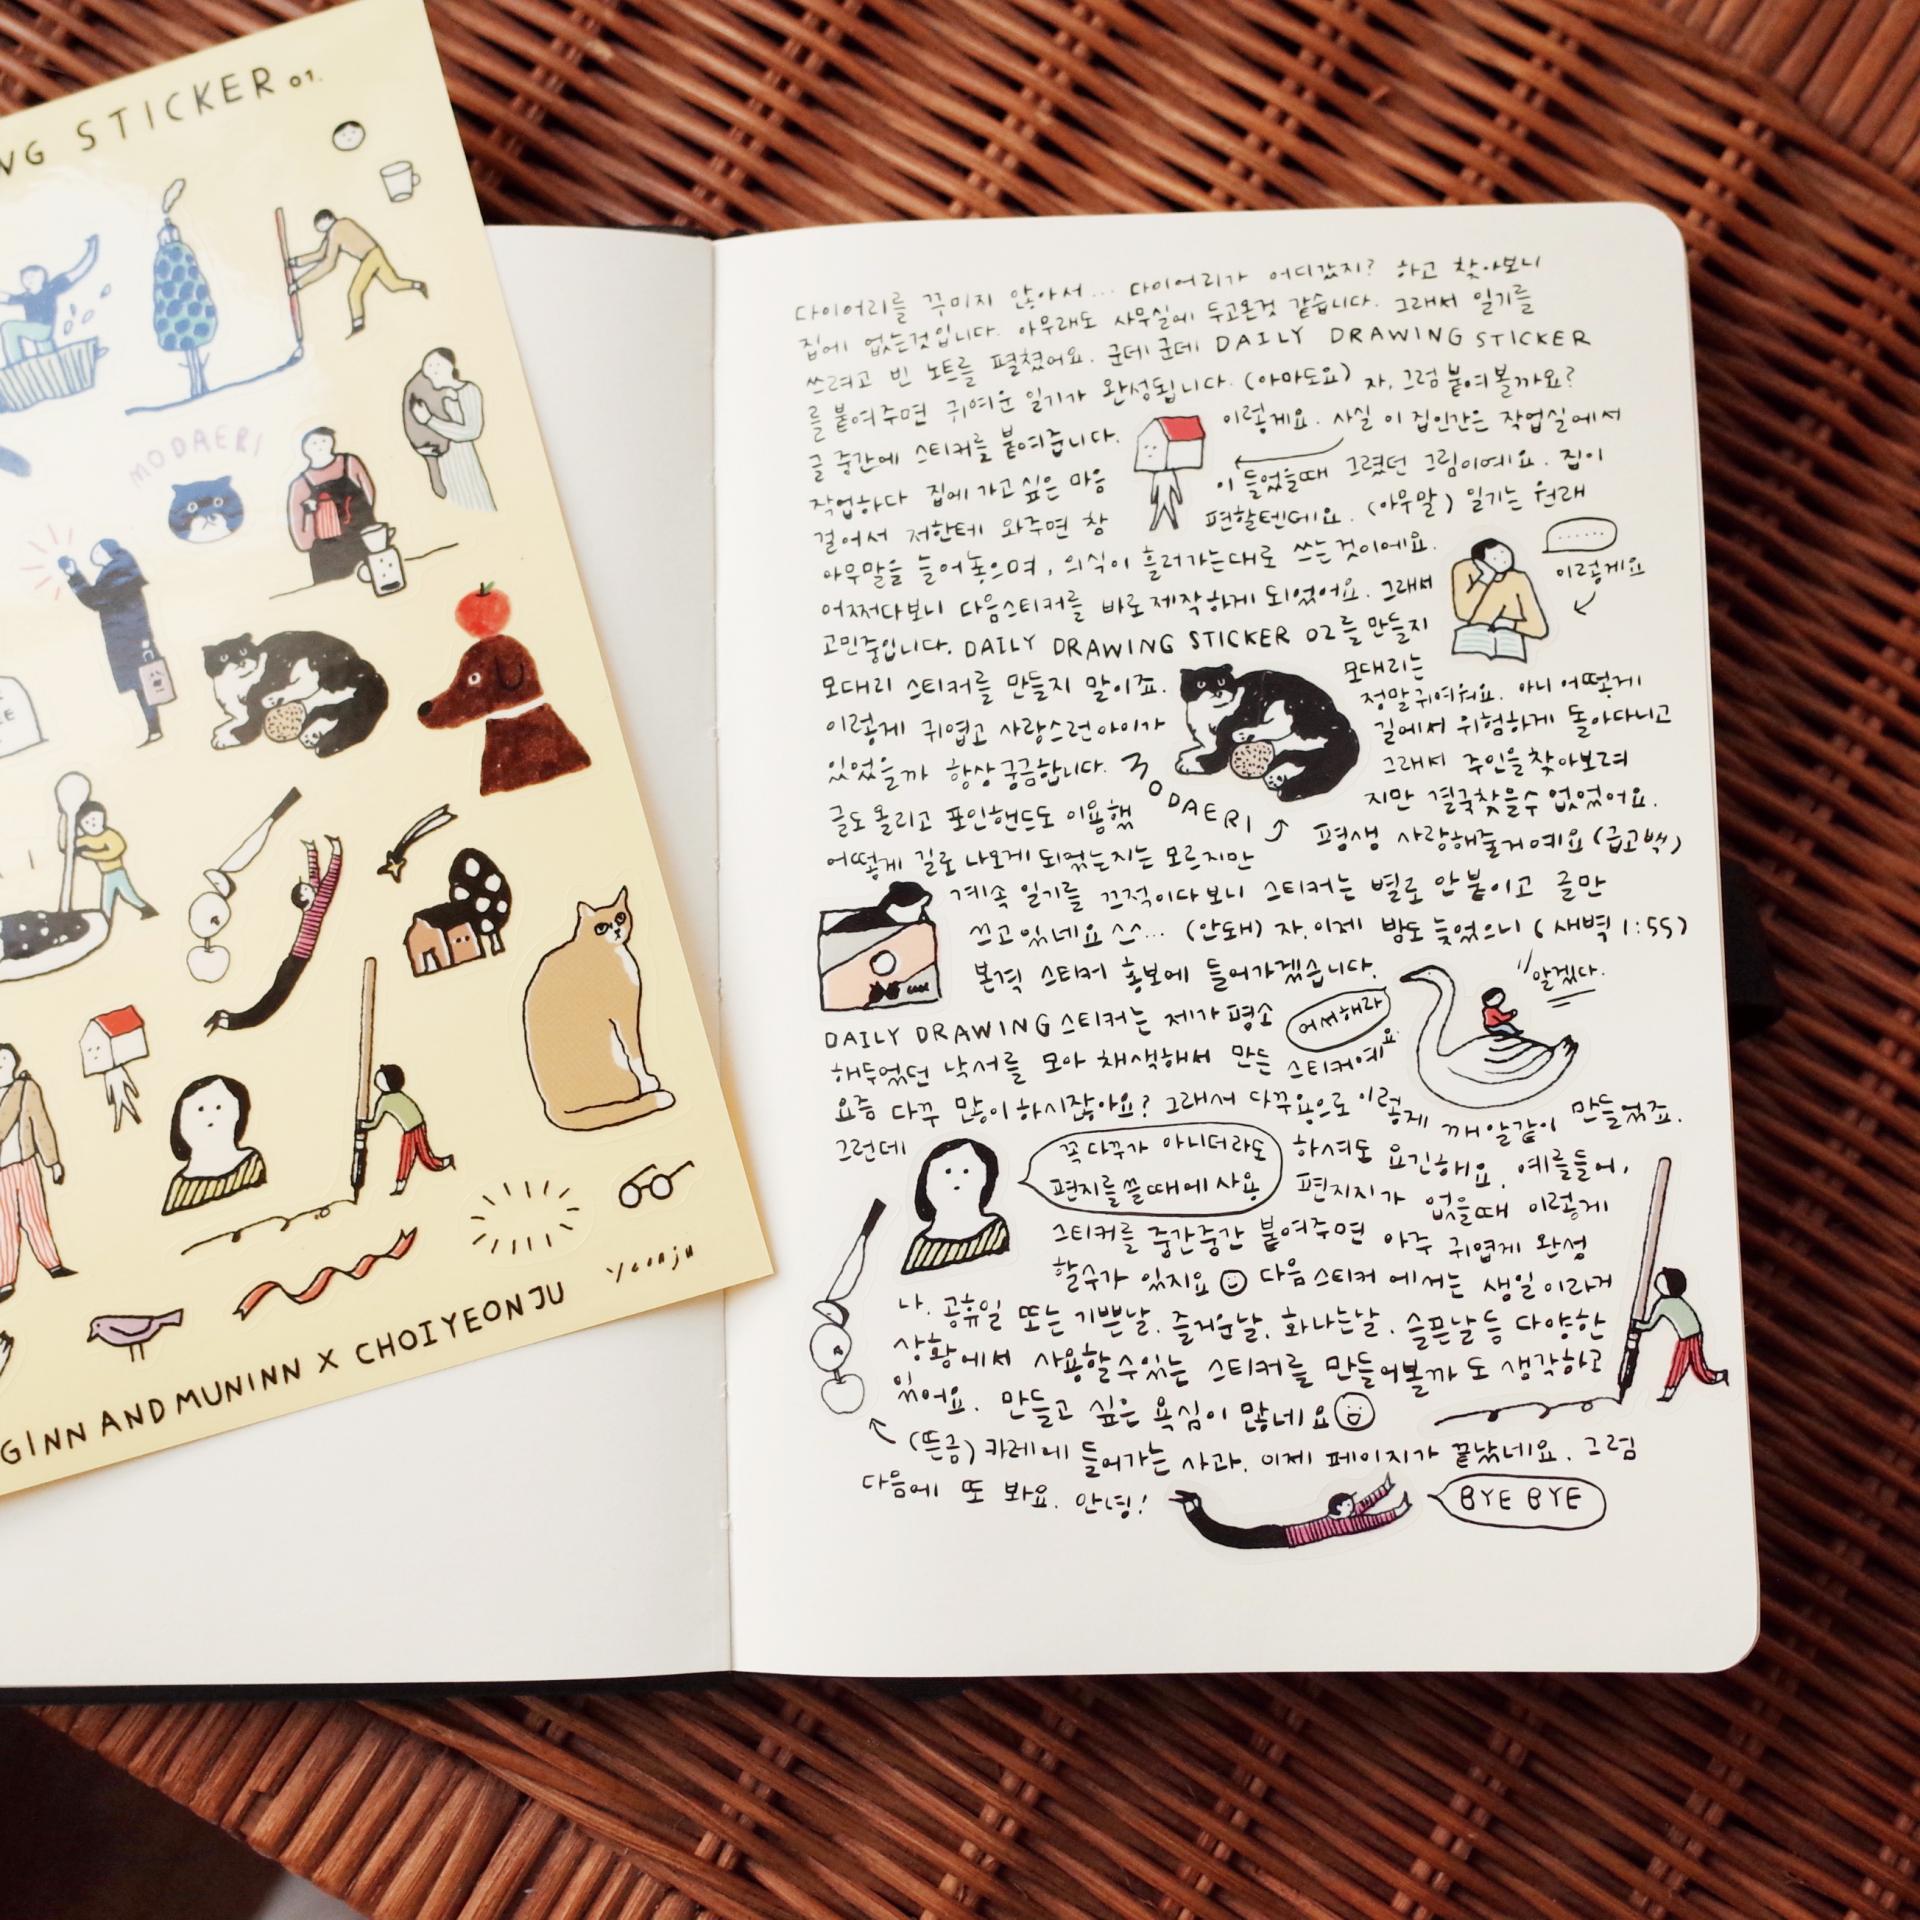 NG STICKER 01.
MODAERI
GINN AND MUNINN X CHOIYEONJU
yeonju
다이어리를 꾸미지 않아서... 다이어리가 어디갔지? 하고 찾아보니
집에 없는것입니다. 아무래도 사무실에 두고온것 같습니다. 그래서 일기를
쓰려고 빈 노트를 펼쳤어요. 군데군데 DAILY DRAWING STICKER
를 붙여주면 귀여운 일기가 완성됩니다. (아마도요) 자, 그럼 붙여볼까요?
글 중간에 스티커를 붙여줍니다. 이렇게요. 사실 이 집인간은 작업실에서
작업하다 집에 가고 싶은 마음 이 들었을때 그렸던 그림이예요. 집이
걸어서 저한테 와주면 참 편할텐데요. (아무말) 일기는 원래
아무말을 늘어놓으며, 의식이 흘러가는대로 쓰는것이에요.
......
이렇게요
어쩌다보니 다음스티커를 바로 제작하게 되었어요. 그래서
고민중입니다. DAILY DRAWING STICKER 02를 만들지
모대리 스티커를 만들지 말이죠. 모대리는
정말귀여워요. 아니 어떻게
이렇게 귀엽고 사랑스런아이가 길에서 위험하게 돌아다니고
있었을까 항상 궁금합니다. 그래서 주인을찾아보려
MODAERI
글도 올리고 포인핸드도 이용했 지만 결국찾을수 없었어요.
어떻게 길로 나오게 되었는지는 모르지만 평생 사랑해줄거예요 (급고백)
계속 일기를 끄적이다보니 스티커는 별로 안붙이고 글만
쓰고있네요 ㅅㅅ... (안돼) 자, 이제 밤도 늦었으니 (새벽 1:55)
본격 스티커 홍보에 들어가겠습니다.
알겠다.
어서해라
DAILY DRAWING 스티커는 제가 평소
해두었던 낙서를 모아 채색해서 만든 스티커예요
요즘 다꾸 많이 하시잖아요? 그래서 다꾸용으로 이렇게 깨알같이 만들었죠.
그런데
꼭 다꾸가 아니더라도
편지를 쓸때에 사용
하셔도 요긴해요. 예를들어,
편지지가 없을때 이렇게
스티커를 중간중간 붙여주면 아주 귀엽게 완성
할수가 있지요 다음 스티커 에서는 생일이라거
나, 공휴일 또는 기쁜날, 즐거운날, 화나는날, 슬픈날등 다양한
상황에서 사용할수있는 스티커를 만들어볼까 도 생각하고
있어요. 만들고 싶은 욕심이 많네요
(뜬금) 카레에 들어가는 사과. 이제 페이지가 끝났네요. 그럼
다음에 또 봐요. 안녕!
BYE BYE